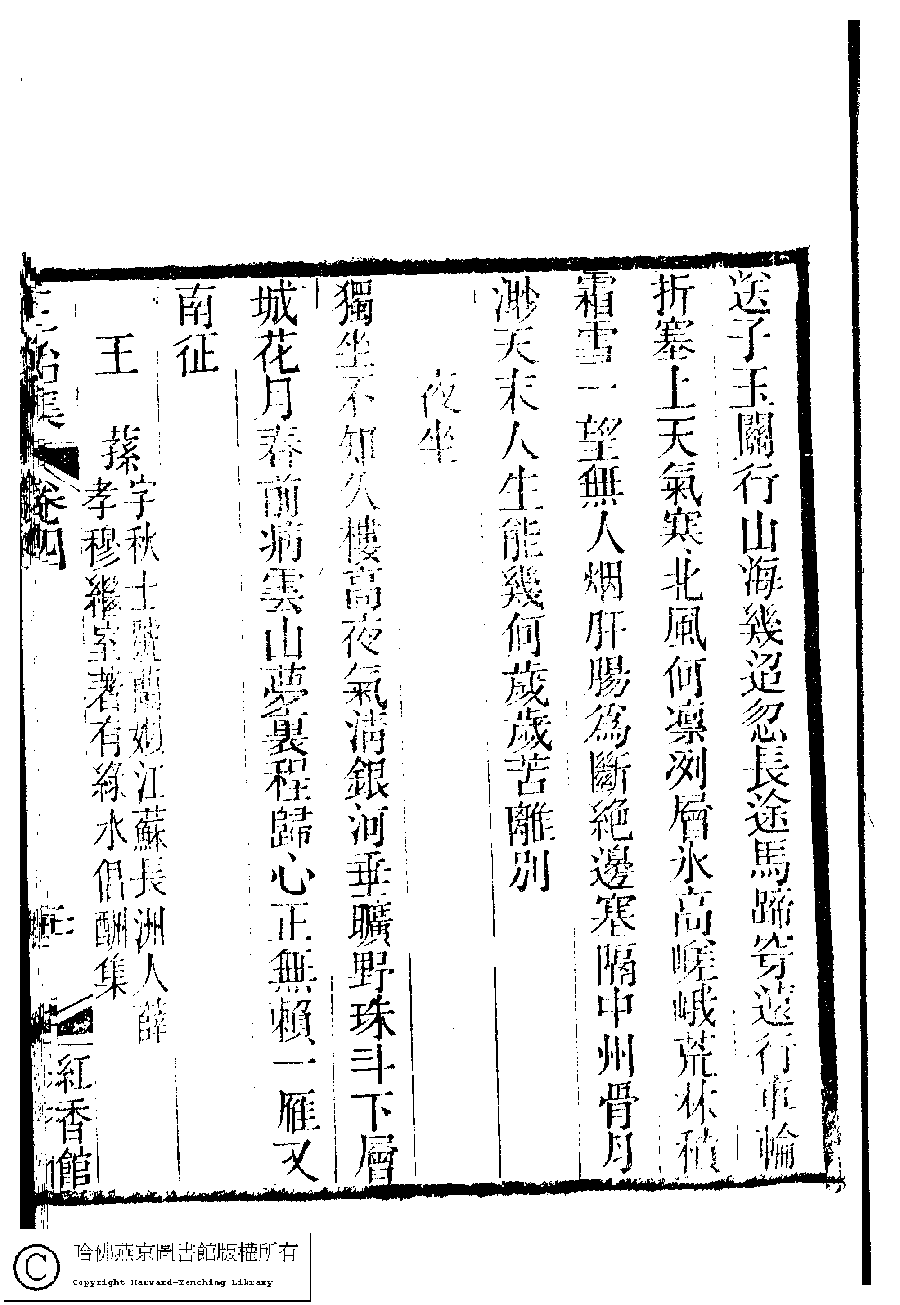 送子玉關行山海幾迢忽長途馬蹄穿遠行車輪
折塞上天氣寒北風何凛冽層氷高嵯峨荒林積
霜雪一望無人烟肝腸爲斷絶邊塞隔中州骨月
渺天末人生能幾何歲歲苦離別
夜坐
獨坐不知久樓高夜氣淸銀河垂曠野珠斗下層
城花月春前病雲山夢裏程歸心正無賴一雁又
南征
王蓀
字秋士號蘭婘江蘇長洲人薛
孝穆繼室著有綠水倡酬集
卷四
紅香館
哈佛燕京圖書館版權所有
Copyright Harvard-Yenching Library